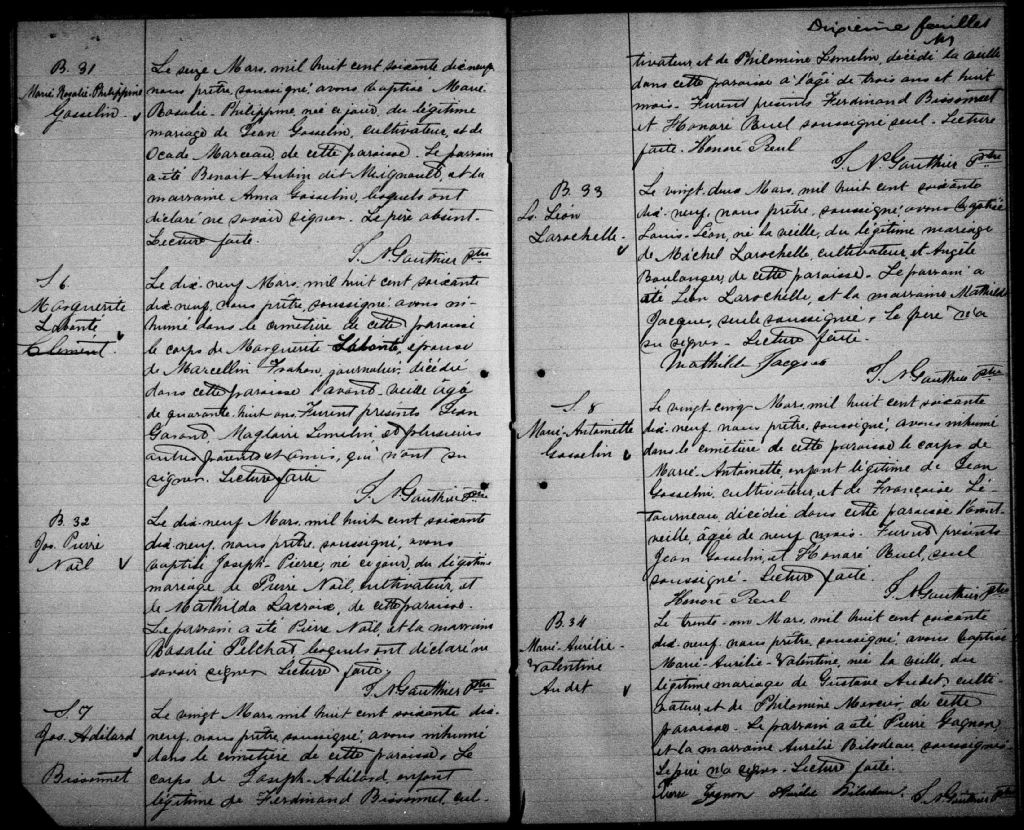 B. 31
Marie Rosalie Philippine
Gosselin
Le seize Mars, mil huit cent soixante dix-neuf
nous prêtre, soussigné, avons baptisé Marie
Rosalie-Philippine, née ce jour, du légitime
mariage de Jean Gosselin, cultivateur, et de
Ocade Marceau, de cette paroisse. Le parrain
a été Benoit Aubin dit Mignault, et la
marraine Anna Gosselin, lesquels ont
déclaré ne savoir signer. Le père absent.
Lecture faite.
J. N. Gauthier Ptre
S. 6
Marguerite
Labonté
Clément
Le dix-neuf Mars, mil huit cent soixante
dix-neuf, nous prêtre, soussigné, avons in-
humé dans le cimetière de cette paroisse
le corps de Marguerite Labonté, épouse
de Marcellin Trahan, journalier, décédée
dans cette paroisse l'avant-veille âgée
de quarante-huit ans. Furent présents Jean
Magloire Lemelin, et plusieurs
autres parents et amis, qui n'ont su
signer. Lecture faite
J. N. Gauthier Ptre
B. 32
Jos. Pierre
Noël
Le dix-neuf Mars, mil huit cent soixante
dix-neuf, nous prêtre, soussigné, avons
baptisé Joseph-Pierre, né ce jour, du légitime
mariage de Pierre Noël, cultivateur, et
de Mathilda Lacroix, de cette paroisse.
Le parrain a été Pierre Noël, et la marraine
Rosalie Pelchat, lesquels ont déclaré ne
savoir signer. Lecture faite.
J. N. Gauthier Ptre
S. 7
Jos. Adilard
Bissonnet
Le vingt Mars, mil huit cent soixante dix-
neuf, nous prêtre, soussigné, avons inhumé
dans le cimetière de cette paroisse, le
corps de Joseph-Adilard, enfant
légitime de Ferdinand Bissonnet, cul-
Dixième feuillet
tivateur, et de Philomène Lemelin, décédé la veille
dans cette paroisse à l'âge de trois ans et huit
mois. Furent présents Ferdinand Bissonnet
et Honoré Buel soussigné seul. Lecture
faite. Honoré Reul
J. N. Gauthier Ptre
B. 33
Ls. Léon
Larochelle
Le vingt-deux Mars, mil huit cent soixante
dix-neuf, nous prêtre, soussigné, avons baptisé
Louis-Léon, né la veille, du légitime mariage
de Michel Larochelle, cultivateur, et Angèle
Boulanger, de cette paroisse. Le parrain a
été Léon Larochelle, et la marraine Mathilde
Jacques, seule soussignée, le père n'a
su signer. Lecture faite.
Mathilde Jacques
J. N. Gauthier Ptre
S. 8
Marie-Antoinette
Gosselin
Le vingt-cinq Mars, mil huit cent soixante
dix-neuf, nous prêtre, soussigné, avons inhumé
dans le cimetière de cette paroisse le corps de
Marie-Antoinette, enfant légitime de Jean
Gosselin, cultivateur, et de Françoise Lé-
tourneau, décédée dans cette paroisse l'avant-
veille, âgée de neuf mois. Furent présents
Jean Gosselin, et Honoré Buel, seul
soussigné. Lecture faite
Honoré Reul
J. N. Gauthier Ptre
B. 34
Marie-Aurélie-
Valentine
Audet
Le trente-un Mars, mil huit cent soixante
dix-neuf, nous prêtre, soussigné, avons baptisé
Marie-Aurélie-Valentine, née la veille, du
légitime mariage de Gustave Audet, culti-
vateur, et de Philomène Mercier, de cette
paroisse. Le parrain a été Pierre Gagnon,
et la marraine Aurélie Bilodeau, soussignés.
Le père n'a signer. Lecture faite.
Pierre Gagnon Aurélie Bilodeau J. N. Gauthier Ptre